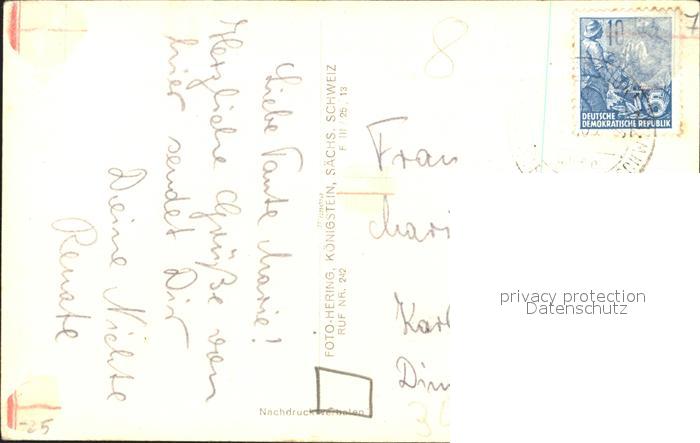 Liebe Tante Marie!
Herzliche Grüße von
hier sendet Dir
Deine Nichte
Renate
FOTO-HERING, KÖNIGSTEIN, SÄCHS. SCHWEIZ
RUF NR. 242
F III / 25 / 13
Nachdruck verboten
8
10
5
DEUTSCHE
DEMOKRATISCHE REPUBLIK
7
Frau
Mari
Karl
Din
privacy protection
Datenschutz
-25